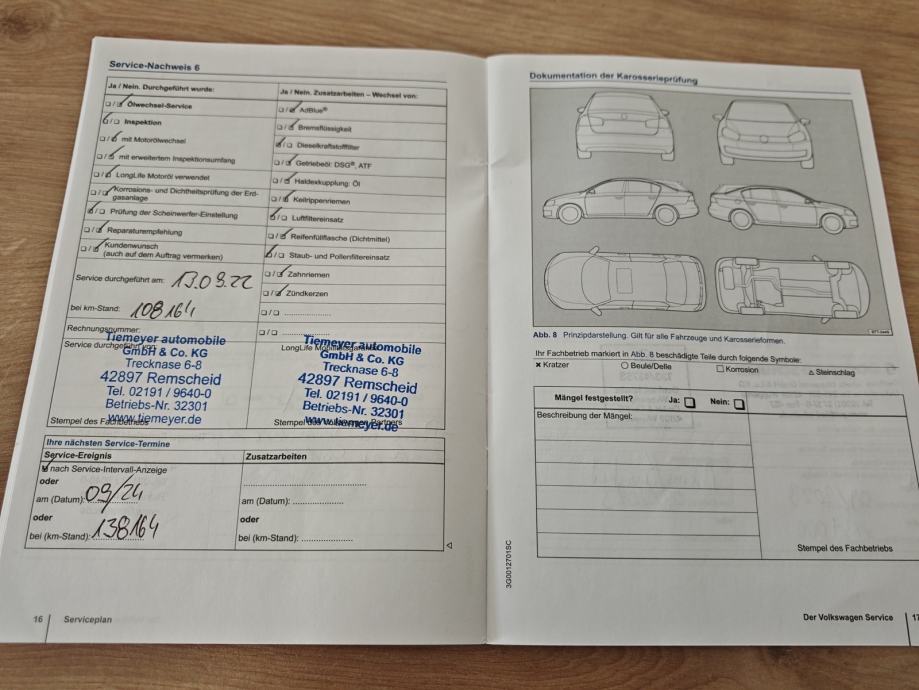 Service-Nachweis 6
Ja / Nein. Durchgeführt wurde:
Ölwechsel-Service
Inspektion
mit Motorölwechsel
mit erweitertem Inspektionsumfang
LongLife Motoröl verwendet
Korrosions- und Dichtheitsprüfung der Erd-
gasanlage
Prüfung der Scheinwerfer-Einstellung
Reparaturempfehlung
Kundenwunsch
(auch auf dem Auftrag vermerken)
Service durchgeführt am: 13.09.22
bei km-Stand: 108164
Rechnungsnummer:
Service durchgeführt von:
Tiemeyer automobile
GmbH & Co. KG
Trecknase 6-8
42897 Remscheid
Tel. 02191 / 9640-0
Betriebs-Nr. 32301
www.tiemeyer.de
Stempel des Fachbetriebs
Ja / Nein. Zusatzarbeiten – Wechsel von:
AdBlue®
Bremsflüssigkeit
Dieselkraftstofffilter
Getriebeöl: DSG®, ATF
Haldexkupplung: Öl
Keilrippenriemen
Luftfiltereinsatz
Reifenfüllflasche (Dichtmittel)
Staub- und Pollenfiltereinsatz
Zahnriemen
Zündkerzen
LongLife
Tiemeyer automobile
GmbH & Co. KG
Trecknase 6-8
42897 Remscheid
Tel. 02191 / 9640-0
Betriebs-Nr. 32301
www.tiemeyer.de
Stempel des Volkswagen Partners
Ihre nächsten Service-Termine
Service-Ereignis
nach Service-Intervall-Anzeige
oder
am (Datum): 09/24
oder
bei (km-Stand): 138164
Zusatzarbeiten
am (Datum):
oder
bei (km-Stand):
16 Serviceplan
Dokumentation der Karosserieprüfung
Abb. 8 Prinzipdarstellung. Gilt für alle Fahrzeuge und Karosserieformen.
Ihr Fachbetrieb markiert in Abb. 8 beschädigte Teile durch folgende Symbole:
Kratzer Beule/Delle Korrosion Steinschlag
Mängel festgestellt? Ja: Nein:
Beschreibung der Mängel:
Stempel des Fachbetriebs
3G0012701SC
Der Volkswagen Service 17